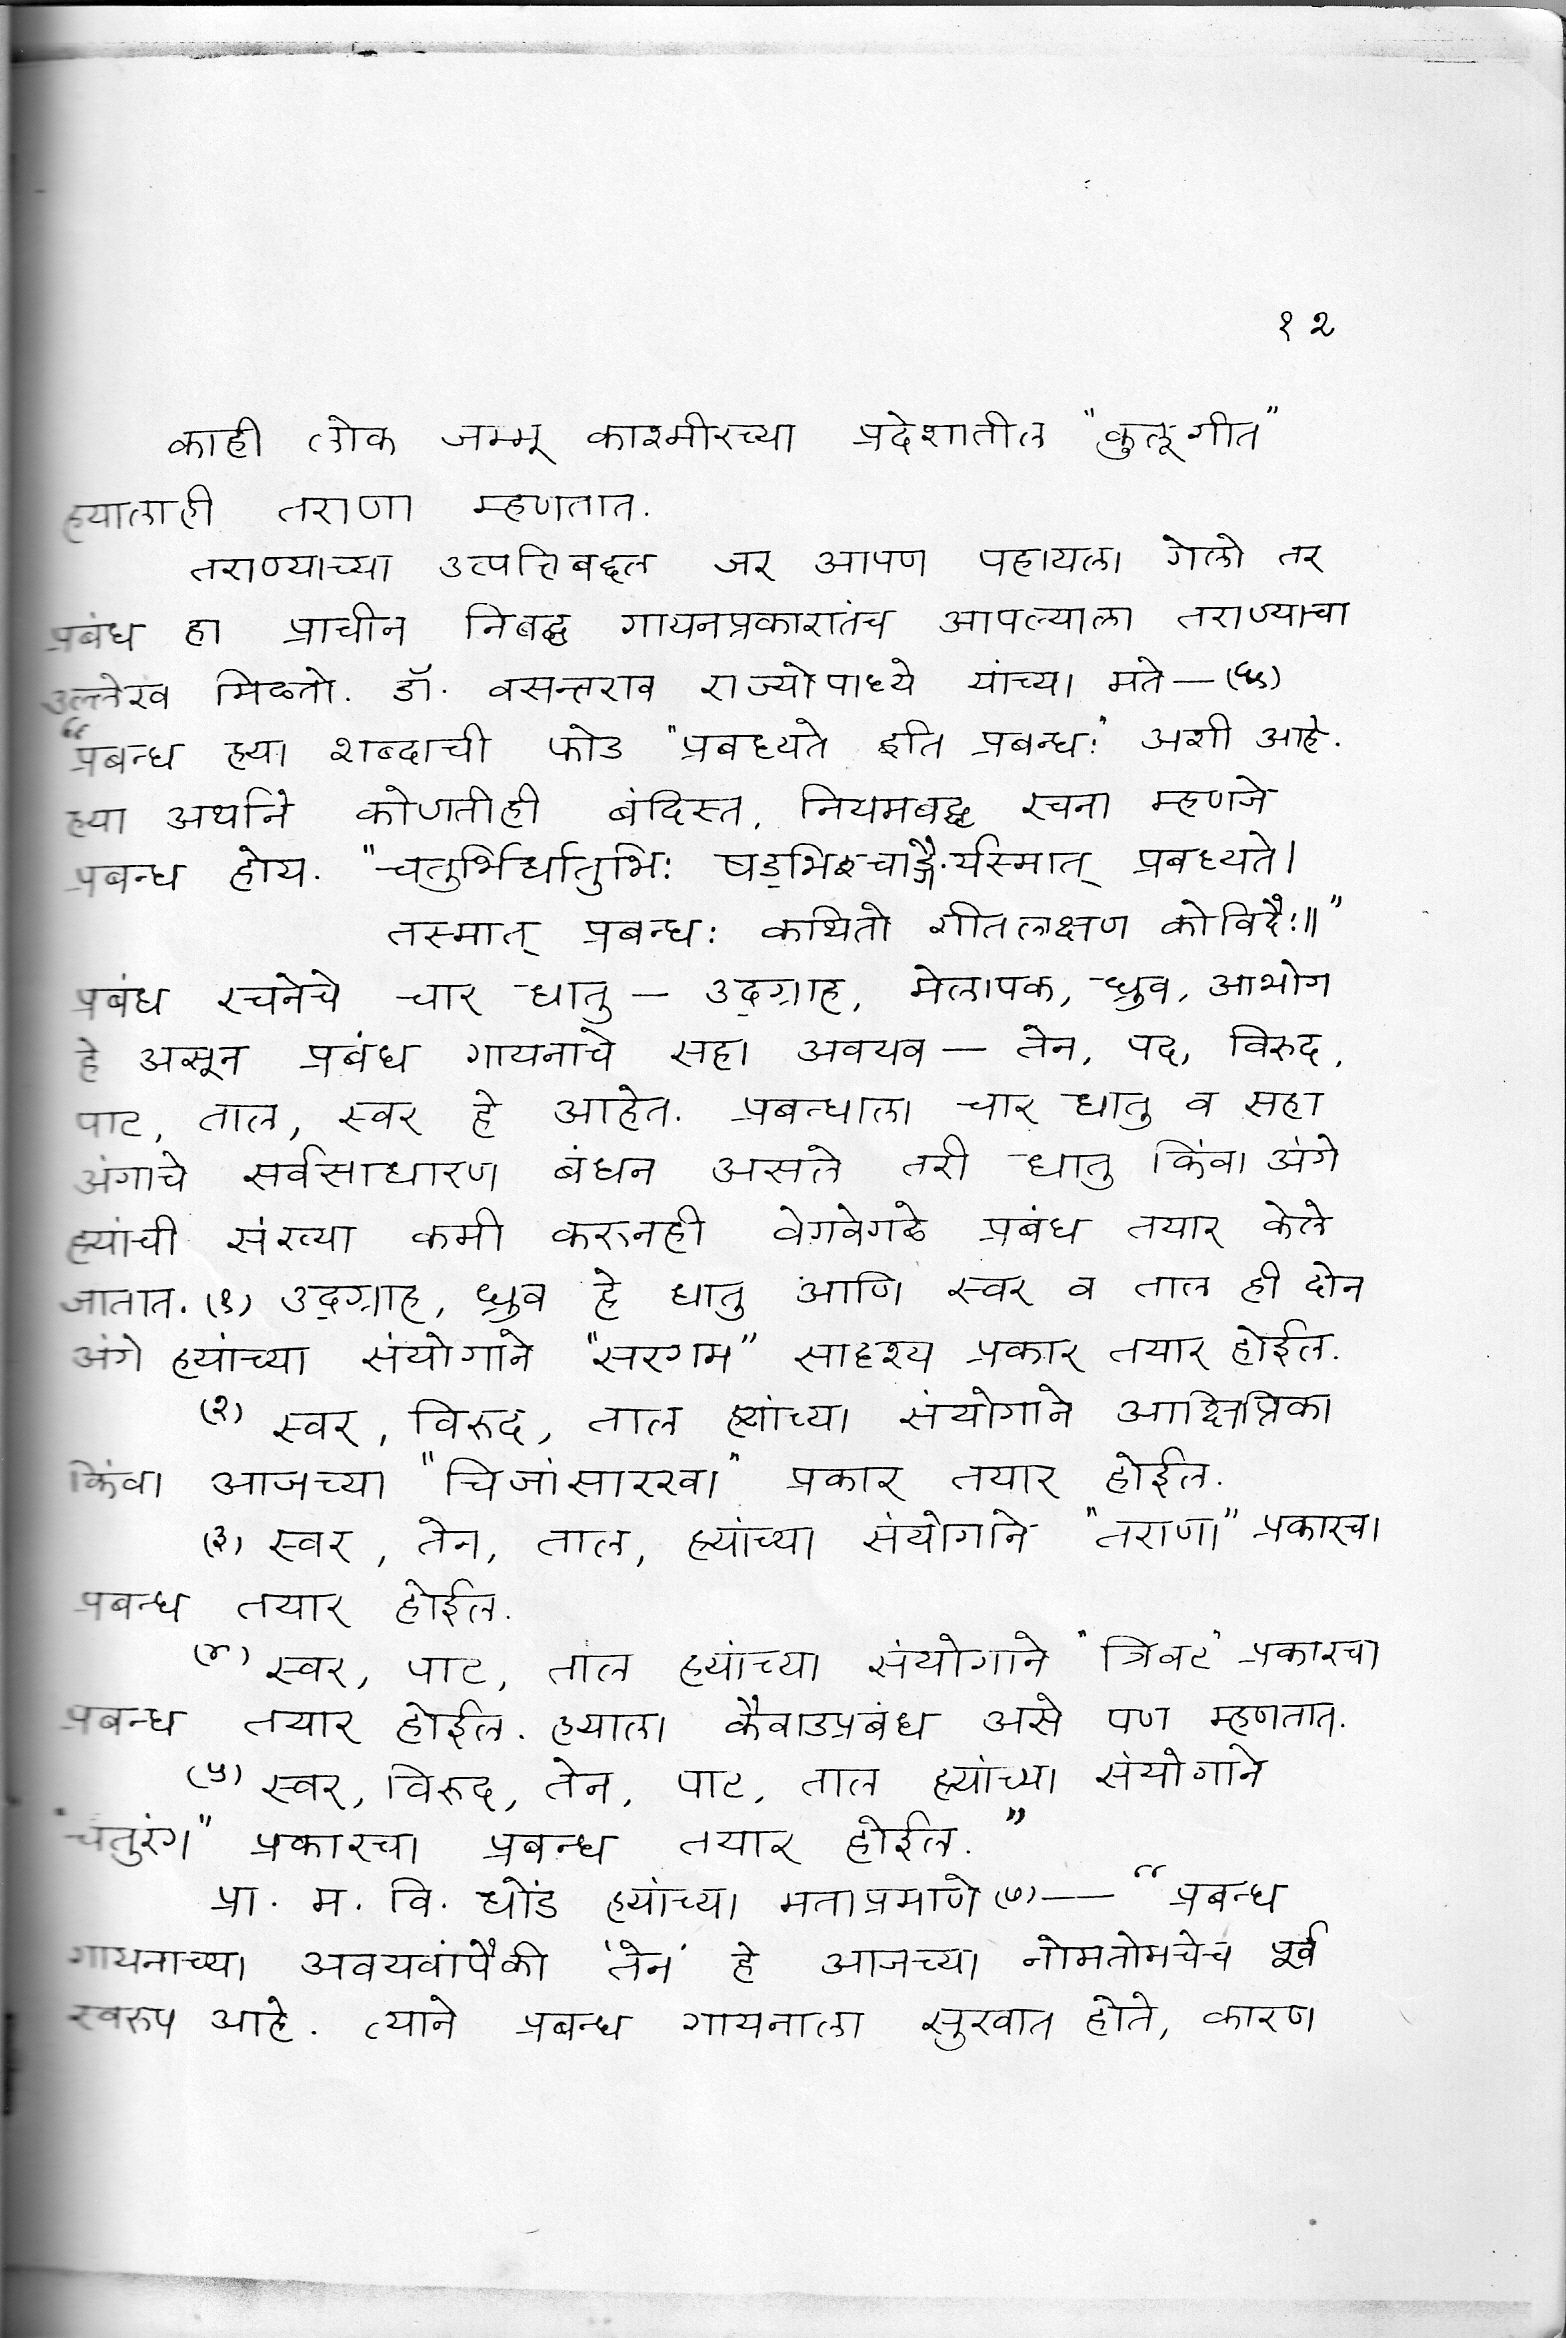 १२
काही लोक जम्मू काश्मीरच्या प्रदेशातील "कुलूगीत"
ह्यालाही तराणा म्हणतात.
तराण्याच्या उत्पत्तिबद्दल जर आपण पहायला गेलो तर
प्रबंध हा प्राचीन निबद्ध गायनप्रकारातंच आपल्याला तराण्याचा
उल्लेख मिळतो. डॉ. वसन्तराव राज्योपाध्ये यांच्या मते —
"प्रबन्ध ह्या शब्दाची फोड "प्रबध्यते इति प्रबन्धः" अशी आहे.
ह्या अर्थाने कोणतीही बंदिस्त, नियमबद्ध रचना म्हणजे
प्रबन्ध होय. "चतुर्भिर्धातुभिः षड्भिश्चाङ्गैर्यस्मात् प्रबध्यते।
तस्मात् प्रबन्धः कथितो गीतलक्षण कोविदैः॥"
प्रबंध रचनेचे चार धातु — उद्‌ग्राह, मेलापक, ध्रुव, आभोग
हे असून प्रबंध गायनाचे सहा अवयव — तेन, पद, विरुद,
पाट, ताल, स्वर हे आहेत. प्रबन्धाला चार धातु व सहा
अंगाचे सर्वसाधारण बंधन असले तरी धातु किंवा अंगे
ह्यांची संख्या कमी करूनही वेगवेगळे प्रबंध तयार केले
जातात. (१) उद्‌ग्राह, ध्रुव हे धातु आणि स्वर व ताल ही दोन
अंगे ह्यांच्या संयोगाने "सरगम" सादृश्य प्रकार तयार होईल.
(२) स्वर, विरूद, ताल ह्यांच्या संयोगाने आक्षिप्तिका
किंवा आजच्या "चिजांसारखा" प्रकार तयार होईल.
(३) स्वर, तेन, ताल, ह्यांच्या संयोगाने "तराणा" प्रकारचा
प्रबन्ध तयार होईल.
(४) स्वर, पाट, ताल ह्यांच्या संयोगाने "त्रिवट" प्रकारचा
प्रबन्ध तयार होईल. ह्याला कैवाडप्रबंध असे पण म्हणतात.
(५) स्वर, विरूद, तेन, पाट, ताल ह्यांच्या संयोगाने
"चतुरंग" प्रकारचा प्रबन्ध तयार होईल."
प्रा. म. वि. धोंड ह्यांच्या मताप्रमाणे (७) — "प्रबन्ध
गायनाच्या अवयवांपैकी 'तेन' हे आजच्या नोमतोमचेच पूर्व
स्वरूप आहे. त्याने प्रबन्ध गायनाला सुरवात होते, कारण